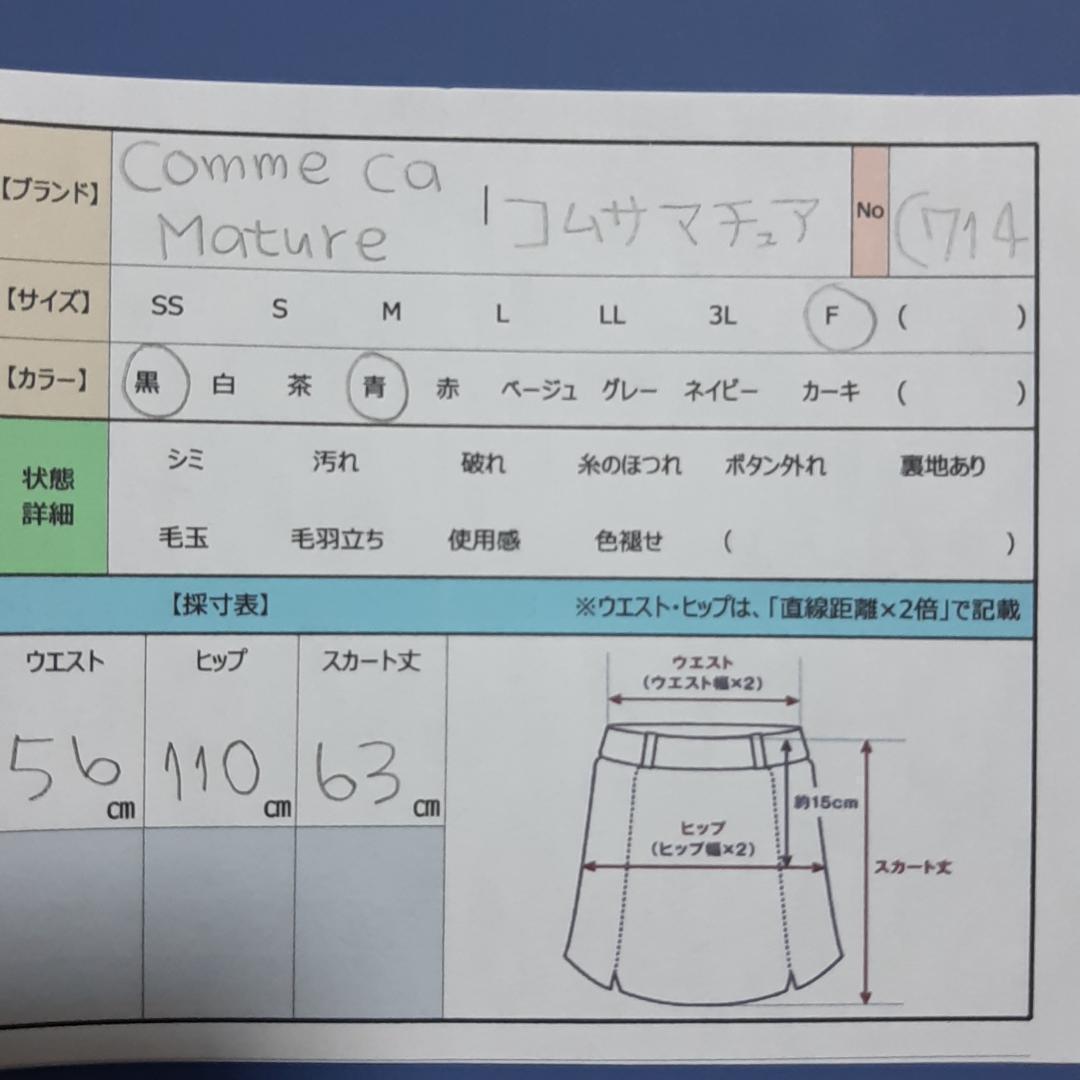 【ブランド】 Comme ca Mature コムサマチュア No (714
【サイズ】 SS S M L LL 3L F ( )
【カラー】 黒 白 茶 青 赤 ベージュ グレー ネイビー カーキ ( )
状態詳細
シミ 汚れ 破れ 糸のほつれ ボタン外れ 裏地あり
毛玉 毛羽立ち 使用感 色褪せ ( )
【採寸表】 ※ウエスト・ヒップは、「直線距離×2倍」で記載
ウエスト ヒップ スカート丈
56 cm 110 cm 63 cm
ウエスト
(ウエスト幅×2)
約15cm
ヒップ
(ヒップ幅×2)
スカート丈